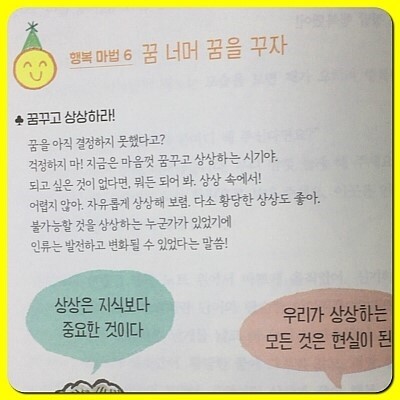 행복 마법 6 꿈 너머 꿈을 꾸자
♣ 꿈꾸고 상상하라!
꿈을 아직 결정하지 못했다고?
걱정하지 마! 지금은 마음껏 꿈꾸고 상상하는 시기야.
되고 싶은 것이 없다면, 뭐든 되어 봐. 상상 속에서!
어렵지 않아. 자유롭게 상상해 보렴. 다소 황당한 상상도 좋아.
불가능할 것을 상상하는 누군가가 있었기에
인류는 발전하고 변화될 수 있었다는 말씀!
상상은 지식보다
중요한 것이다
우리가 상상하는
모든 것은 현실이 된